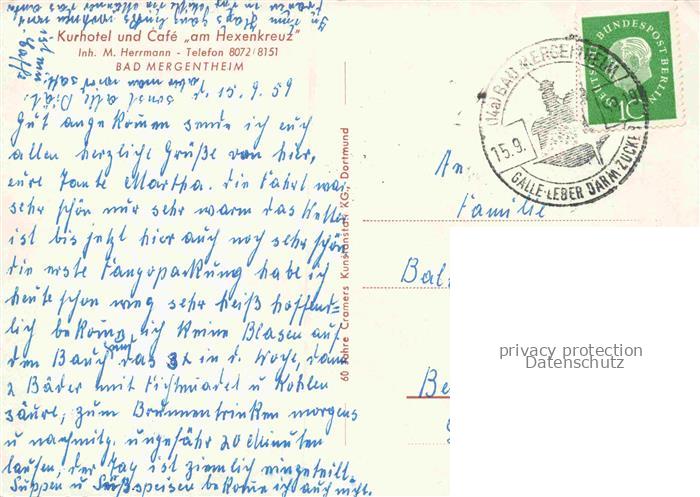 Kurhotel und Café „am Hexenkreuz"
Inh. M. Herrmann - Telefon 8072/8151
BAD MERGENTHEIM
d. 15. 9. 59
Gut angekomen sende ich euch
allen herzliche Grüße von hier,
eure Tante Martha. die Fahrt war
sehr schön nur sehr warm das Wetter
ist bis jetzt hier auch noch sehr schön
die erste Fangopackung habe ich
heute schon weg sehr heiß hoffent-
lich bekome ich keine Blasen auf
den Bauch, das 3x in d. Woche, dann
2 Bäder mit Fichtnadel u Kohlen
säure, zum Brunnentrinken morgens
u nachmitg. ungefähr 20 Minuten
laufen, der Tag ist ziemlich eingeteilt.
Suppen u Süßspeisen bekome ich auch nicht.
60 Jahre Cramers Kunstanstalt KG., Dortmund
(14a) BAD MERGENTHEIM
15.9.
GALLE-LEBER DARM-ZUCKER
DEUTSCHE BUNDESPOST BERLIN
10
An
Familie
Bal
Be
privacy protection
Datenschutz